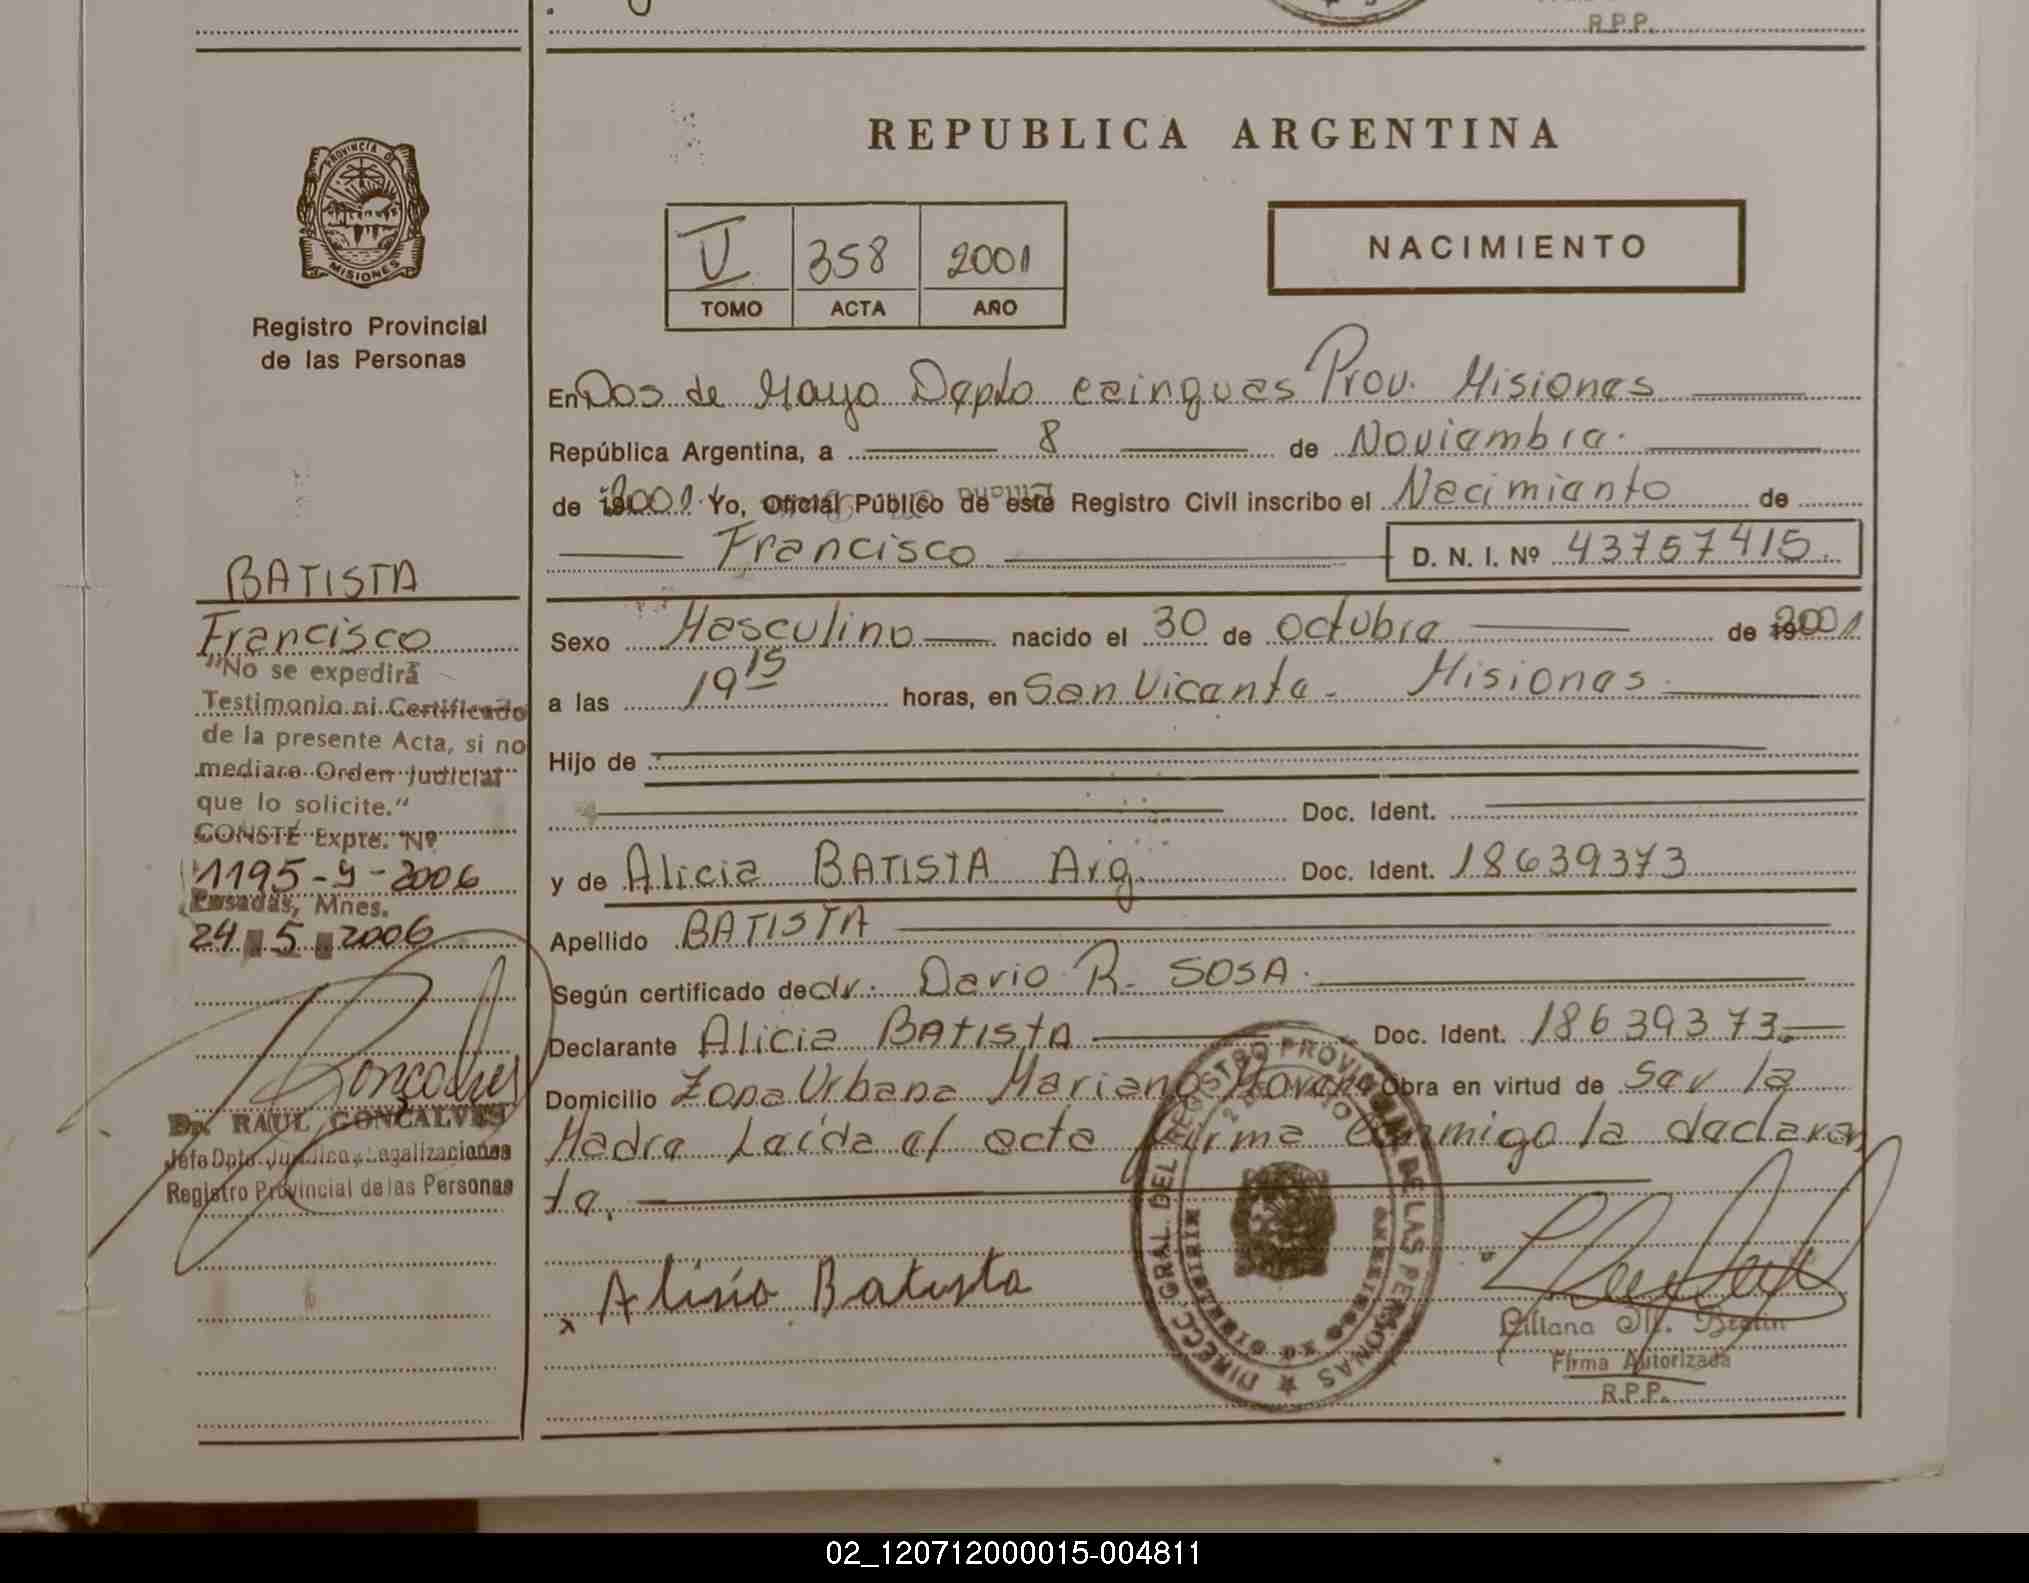 R.P.P.
PROVINCIA DE
MISIONES
Registro Provincial
de las Personas
REPUBLICA ARGENTINA
V 358 2001
TOMO ACTA AÑO
NACIMIENTO
En Dos de Mayo Depto cainguas Prov. Misiones
República Argentina, a 8 de Noviembre.
de 2001. Yo, Oficial Público de este Registro Civil inscribo el Nacimiento de
Francisco D. N. I. Nº 43757415
Sexo Masculino nacido el 30 de octubre de 2001
a las 19 15 horas, en San Vicente - Misiones
Hijo de
Doc. Ident.
y de Alicia BATISTA Arg. Doc. Ident. 18639373
Apellido BATISTA
Según certificado de dr. Dario R. SOSA.
Declarante Alicia BATISTA Doc. Ident. 18639373
Domicilio Zona Urbana Mariano Moreno Obra en virtud de Ser la
Madre Leída el acta firma conmigo la declaran
te.
Alisia Batista
DIRECC GRAL. DEL REGISTRO PROVINCIAL DE LAS PERSONAS
Liliana M.
Firma Autorizada
R.P.P.
BATISTA
Francisco
"No se expedirá
Testimonio ni Certificado
de la presente Acta, si no
mediare Orden Judicial
que lo solicite."
CONSTE Expte. Nº
1195-9-2006
Posadas, Mnes.
24 5 2006
Dr. RAUL GONCALVES
Jefe Dpto. Jurídico y Legalizaciones
Registro Provincial de las Personas
02_120712000015-004811